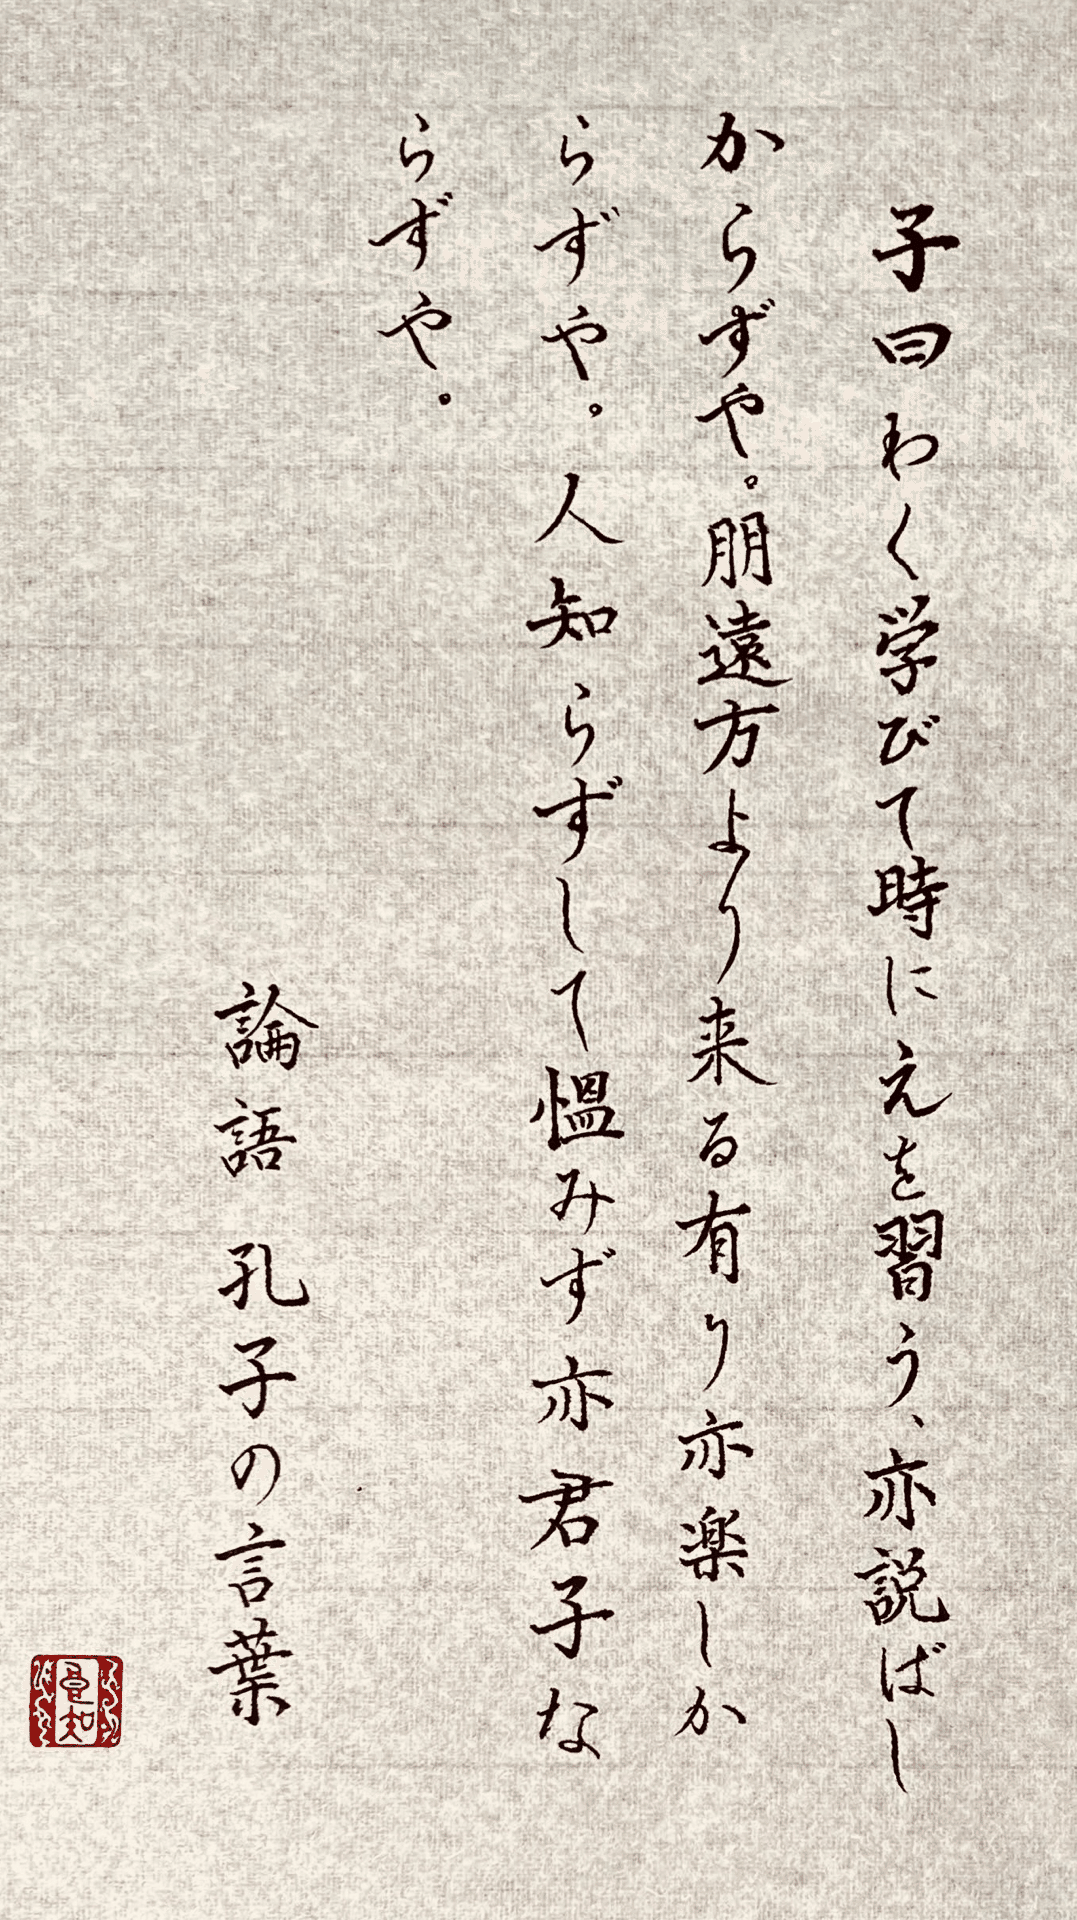 子曰わく学びて時に之を習う、亦説ばし
からずや。朋遠方より来る有り亦楽しか
らずや。人知らずして慍みず亦君子な
らずや。
論語 孔子の言葉